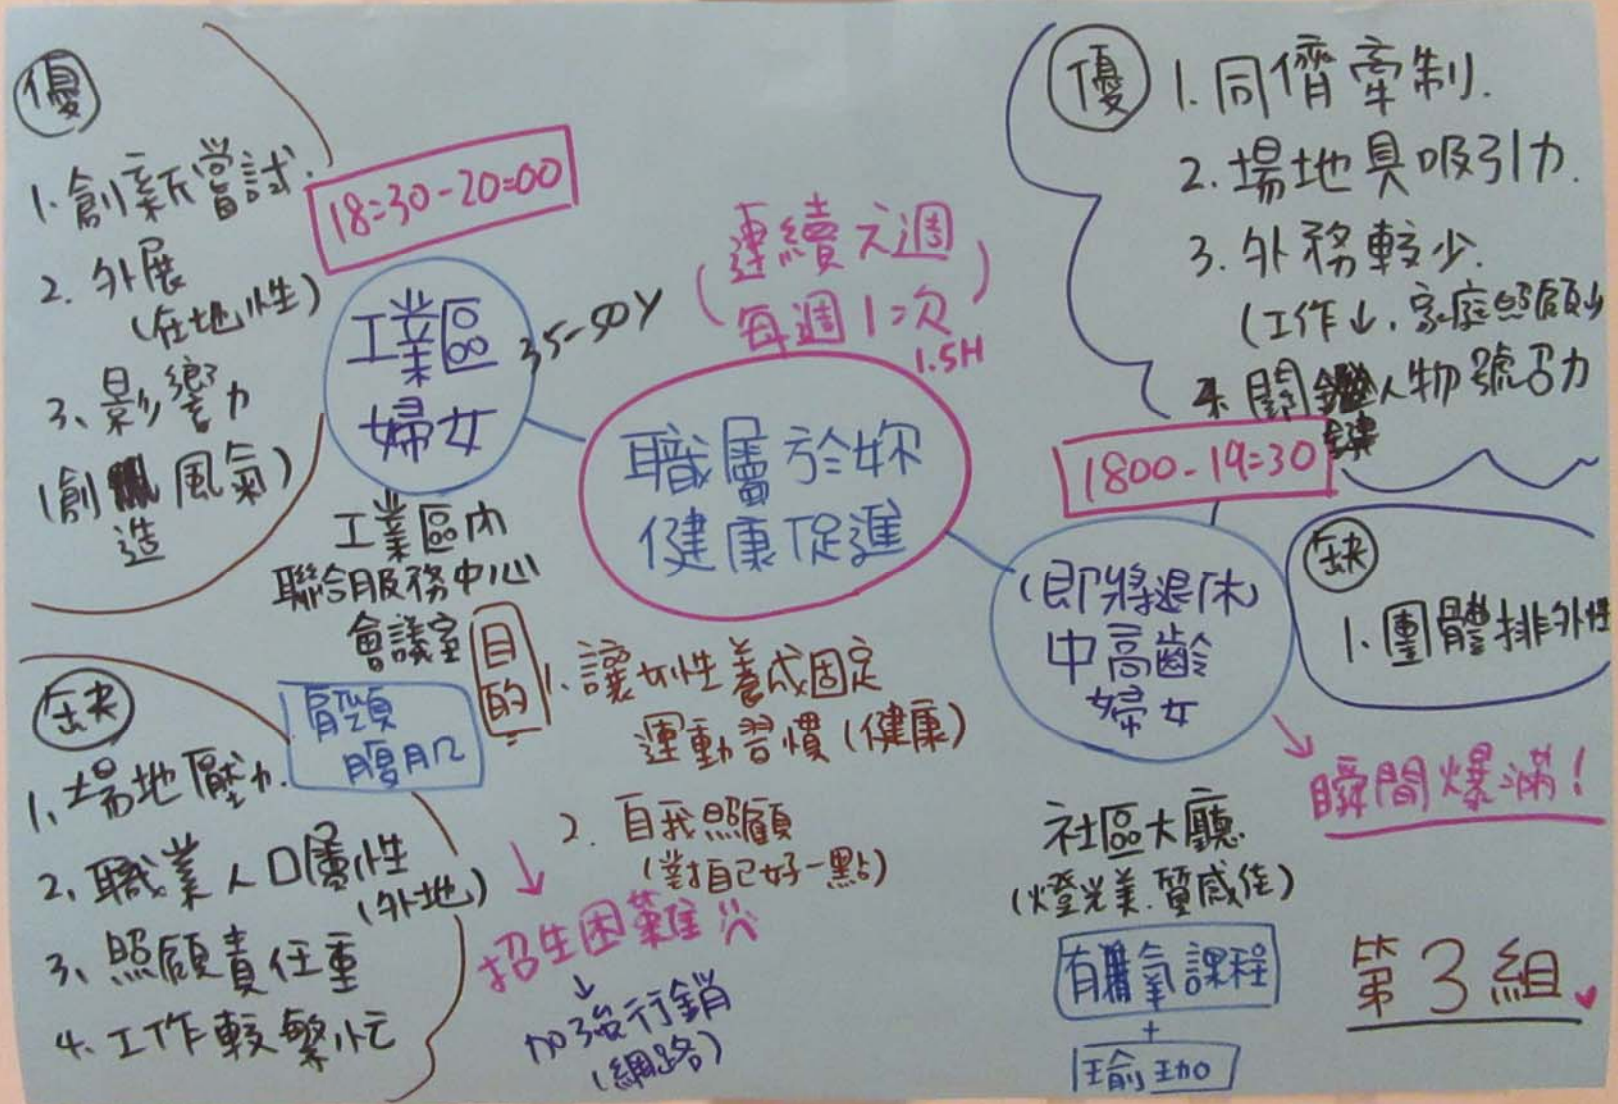 優
1. 創新嘗試.
2. 外展
(在地性)
3、影響力
(創造風氣)
18:30-20:00
工業區
婦女
35-50Y
工業區內
聯合服務中心
會議室
肩頸
腹肌
缺
1、場地壓力.
2、職業人口屬性
(外地)
3、照顧責任重
4、工作較繁忙
(連續六週
每週1次)
1.5H
職屬於妳
健康促進
目的:
1、讓女性養成固定
運動習慣(健康)
2. 自我照顧
(對自己好一點)
招生困難
↓
加強行銷
(網路)
優
1. 同儕牽制.
2. 場地具吸引力.
3. 外務較少.
(工作↓. 家庭照顧少
4. 關鍵人物號召力
1800-19:30
(即將退休)
中高齡
婦女
缺
1、團體排外性
瞬間爆滿!
社區大廳.
(燈光美.質感佳)
有氧課程
+
瑜珈
第3組